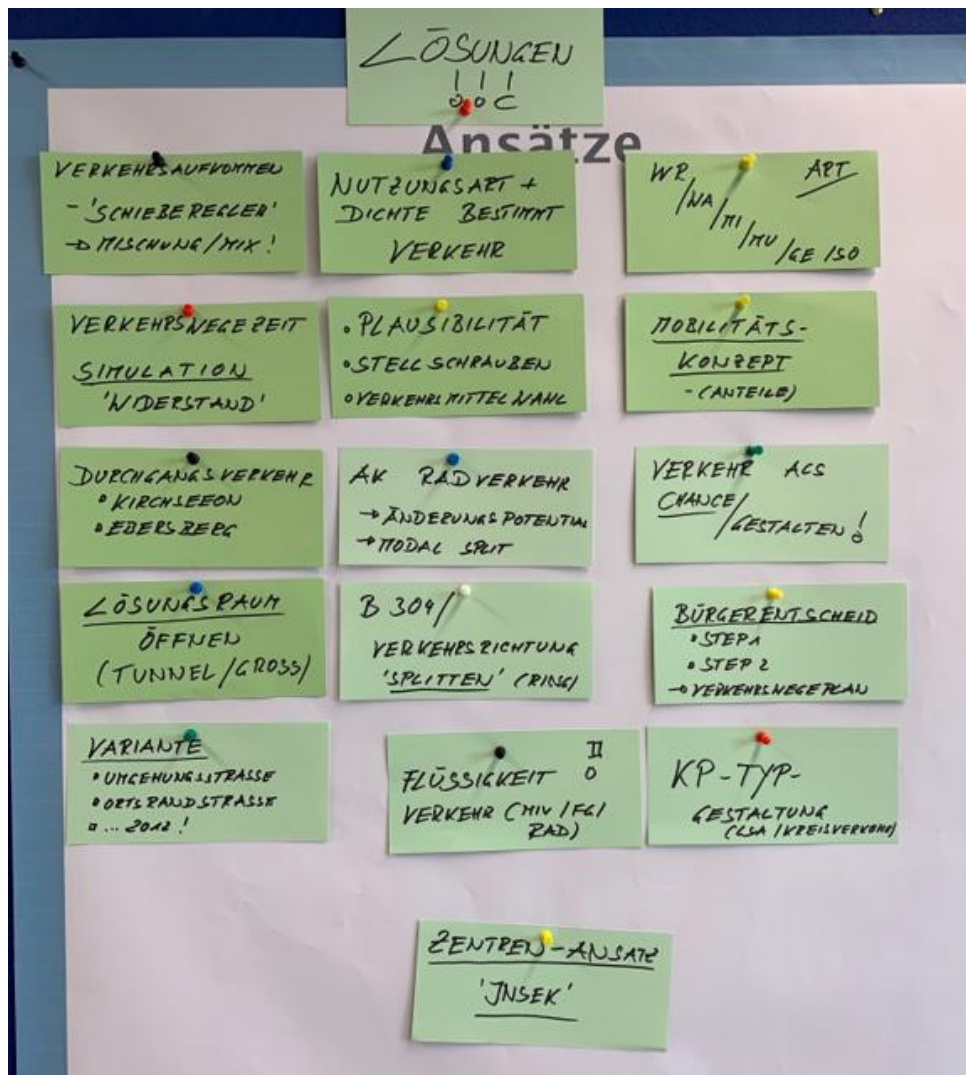 LÖSUNGEN
!!!
Ansätze
VERKEHRSAUFKOMMEN
- 'SCHIEBEREGLER'
→ MISCHUNG/MIX!
NUTZUNGSART +
DICHTE BESTIMMT
VERKEHR
WR ART
/WA/MI/MU/GE/SO
VERKEHRSWEGEZEIT
SIMULATION
'WIDERSTAND'
• PLAUSIBILITÄT
• STELLSCHRAUBEN
• VERKEHRSMITTELWAHL
MOBILITÄTS-
KONZEPT
- (ANTEILE)
DURCHGANGSVERKEHR
• KIRCHSEEON
• EBERSBERG
AK RADVERKEHR
→ ÄNDERUNGSPOTENTIAL
→ MODAL SPLIT
VERKEHR ALS
CHANCE/
/GESTALTEN!
LÖSUNGSRAUM
ÖFFNEN
(TUNNEL/GROSS)
B 304/
VERKEHRSRICHTUNG
'SPLITTEN' (RING)
BÜRGERENTSCHEID
• STEP 1
• STEP 2
→ VERKEHRSWEGEPLAN
VARIANTE
• UMGEHUNGSSTRASSE
• ORTSRANDSTRASSE
• ... 2012!
FLÜSSIGKEIT
VERKEHR (MIV/FG/
RAD)
KP-TYP-
GESTALTUNG
(LSA/KREISVERKEHR)
ZENTREN-ANSATZ
'INSEK'